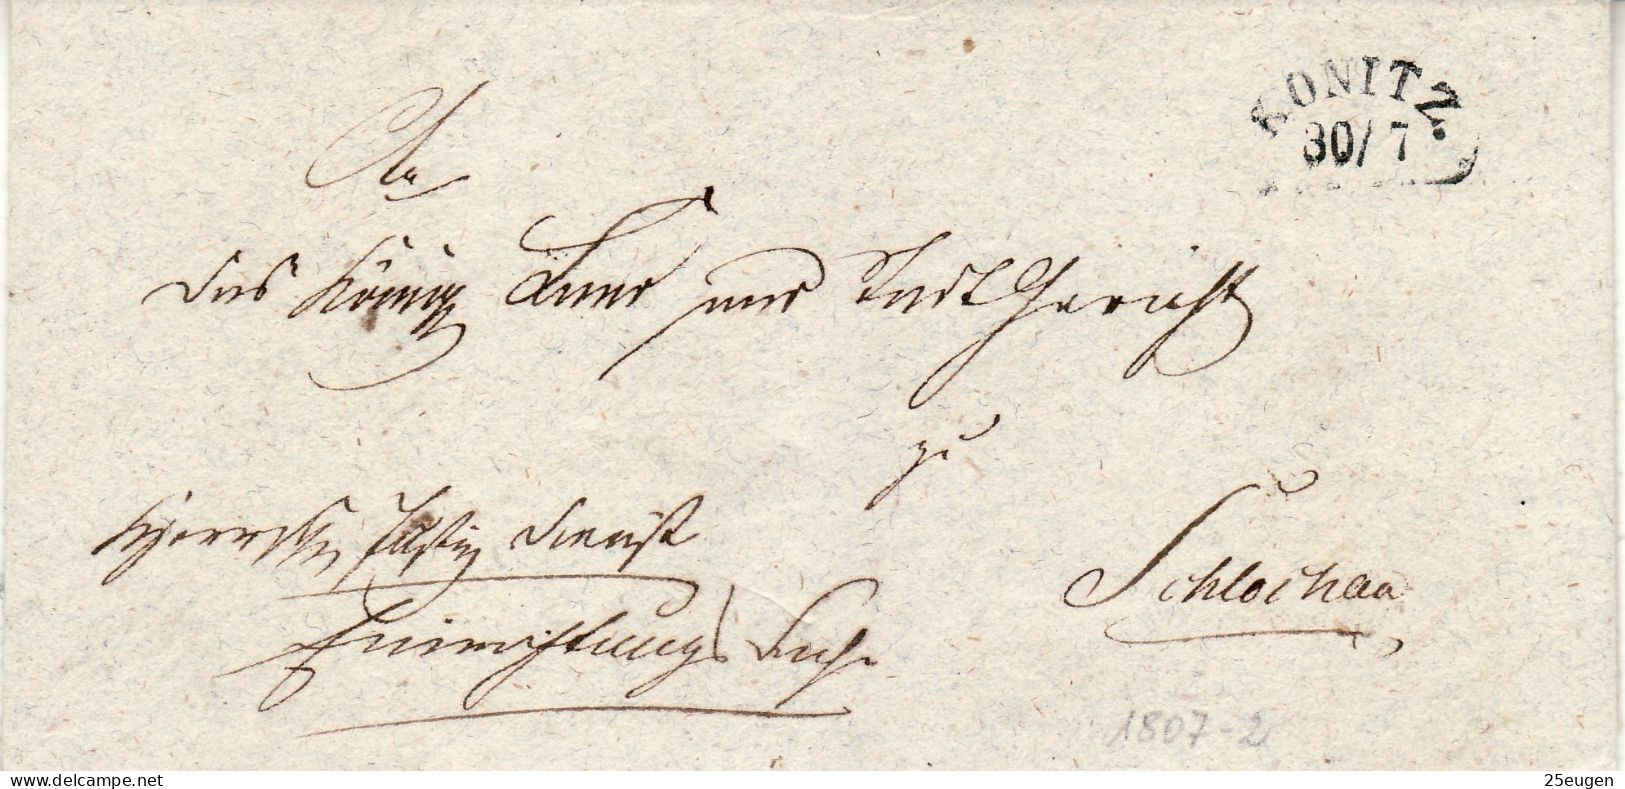 KONITZ.
30/7
An
das Königl Land und StadtGericht
zu
Schlochau
Herrschl Justiz Dienst
Einrichtungs Sache
1807-2
delcampe.net
25eugen